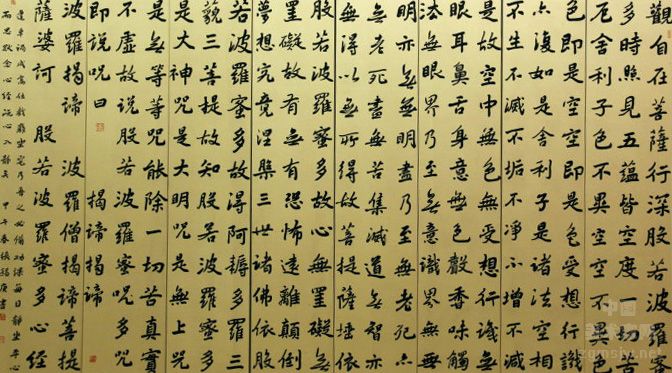 觀自在菩薩行深般若波羅蜜
多時照見五蘊皆空度一切苦
厄舍利子色不異空空不異色
色即是空空即是色受想行識
亦復如是舍利子是諸法空相
不生不滅不垢不淨不增不減
是故空中無色無受想行識無
眼耳鼻舌身意無色聲香味觸
法無眼界乃至無意識界無無
明亦無無明盡乃至無老死亦
無老死盡無苦集滅道無智亦
無得以無所得故菩提薩埵依
般若波羅蜜多故心無罣礙無
罣礙故無有恐怖遠離顛倒
夢想究竟涅槃三世諸佛依般
若波羅蜜多故得阿耨多羅三
藐三菩提故知般若波羅蜜多
是大神咒是大明咒是無上咒
是無等等咒能除一切苦真實
不虛故說般若波羅蜜多咒
即說咒曰 揭諦揭諦
波羅揭諦 波羅僧揭諦菩提
薩婆訶 般若波羅蜜多心經
乃吾之必備功課每日靜坐平心
默念心經 心入靜矣 甲午春 書